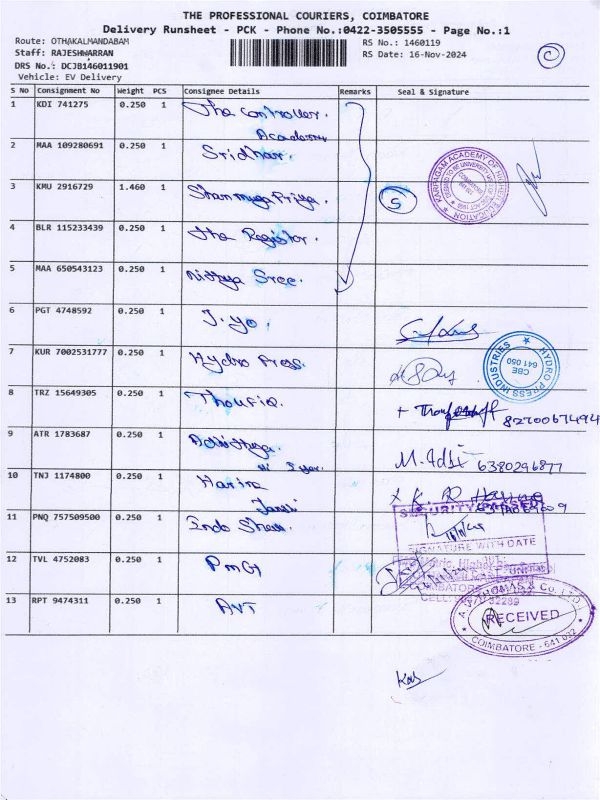 THE PROFESSIONAL COURIERS, COIMBATORE
Delivery Runsheet - PCK - Phone No.:0422-3505555 - Page No.:1
Route: OTHAKALMANDABAM
RS No.: 1460119
Staff: RAJESHWARRAN
RS Date: 16-Nov-2024
DRS No.: DCJB146011901
Vehicle: EV Delivery
S No Consignment No Weight PCS Consignee Details Remarks Seal & Signature
1 KDI 741275 0.250 1 The Controller.
Academy
2 MAA 109280691 0.250 1 Sridhar.
3 KMU 2916729 1.460 1 Shanmuga Priya. 5
4 BLR 115233439 0.250 1 The Registor.
5 MAA 650543123 0.250 1 Nithya Sree.
6 PGT 4748592 0.250 1 J.yo.
7 KUR 7002531777 0.250 1 Hydro Press.
HYDRO PRESS INDUSTRIES CBE 641 050
8 TRZ 15649305 0.250 1 Thoufiq.
9 ATR 1783687 0.250 1 M. Adhi 6380296877
10 TNJ 1174800 0.250 1 Harini
11 PNQ 757509500 0.250 1 Indo Shell.
SIGNATURE WITH DATE
12 TVL 4752083 0.250 1
13 RPT 9474311 0.250 1 AVT
RECEIVED
COIMBATORE - 641 032